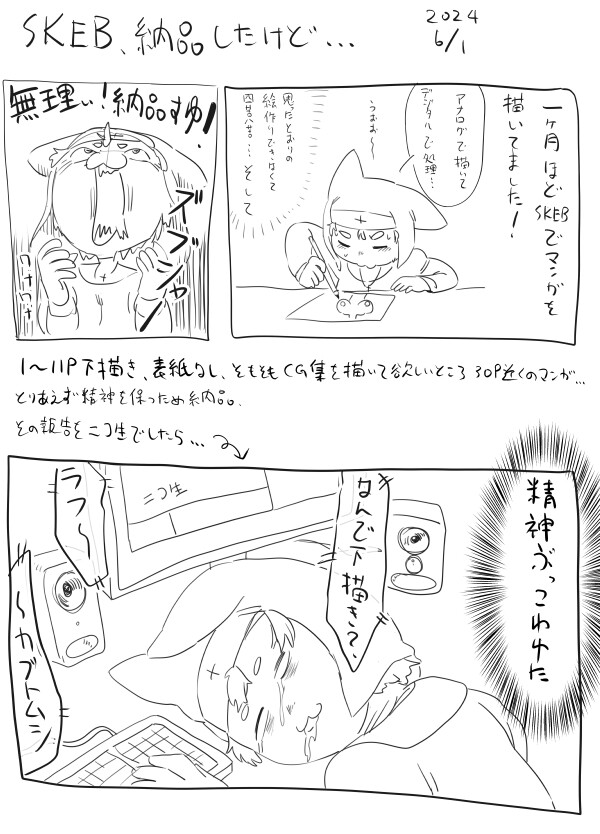 SKEB、納品したけど…
2024
6/1
一ヶ月ほど
SKEBでマンガを
描いてました!
アナログで描いて
デジタルで処理…
うおお〜
思ったとおりの
絵作りできなくて
四苦八苦…そして
無理ぃ!納品すゆ!
イブシャー
1〜11P下描き、表紙なし、そもそもCG集を描いて欲しいところ30P近くのマンガ…
とりあえず精神を保つため納品。
その報告をニコ生でしたら…
精神ぶっこわれた
なんで下描き?
ニコ生
ラフ〜
〜カブトムシ